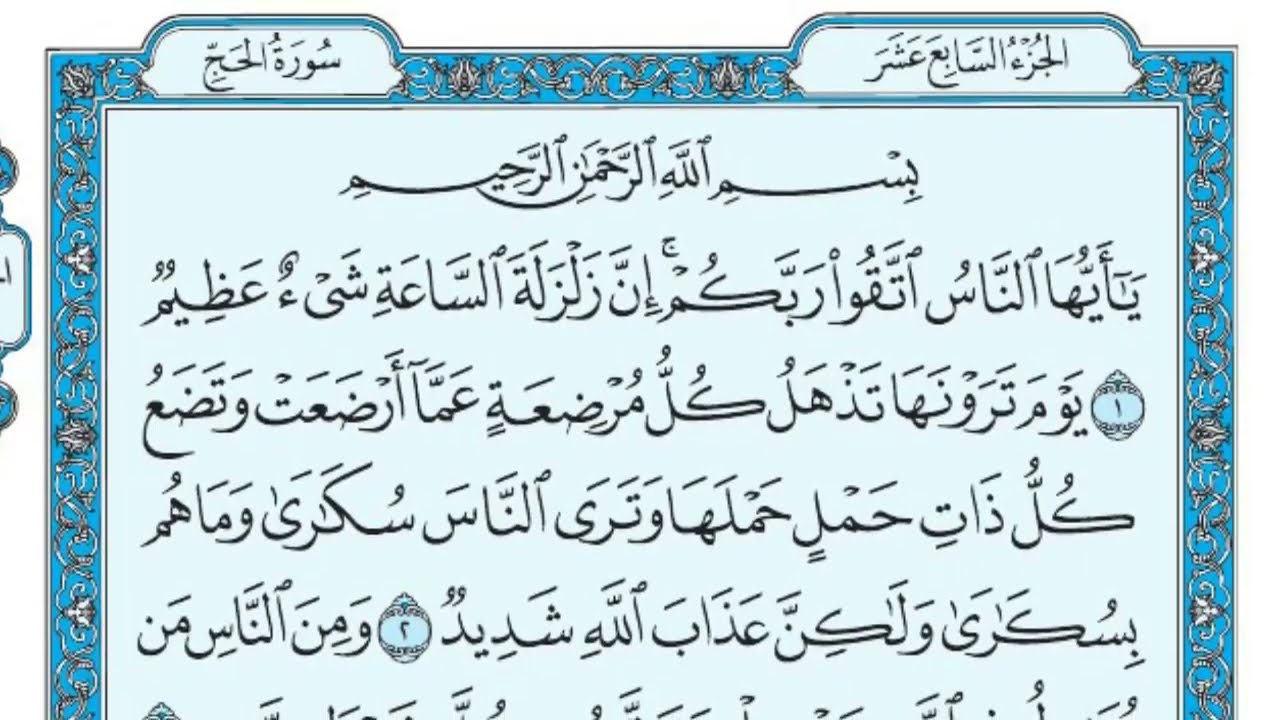 الجُزْءُ السَّابِعَ عَشَرَ
سُورَةُ الحَجِّ
بِسْمِ ٱللَّهِ ٱلرَّحْمَٰنِ ٱلرَّحِيمِ
يَٰٓأَيُّهَا ٱلنَّاسُ ٱتَّقُوا۟ رَبَّكُمْ ۚ إِنَّ زَلْزَلَةَ ٱلسَّاعَةِ شَىْءٌ عَظِيمٌ
١ يَوْمَ تَرَوْنَهَا تَذْهَلُ كُلُّ مُرْضِعَةٍ عَمَّآ أَرْضَعَتْ وَتَضَعُ
كُلُّ ذَاتِ حَمْلٍ حَمْلَهَا وَتَرَى ٱلنَّاسَ سُكَٰرَىٰ وَمَا هُم
بِسُكَٰرَىٰ وَلَٰكِنَّ عَذَابَ ٱللَّهِ شَدِيدٌ ٢ وَمِنَ ٱلنَّاسِ مَن